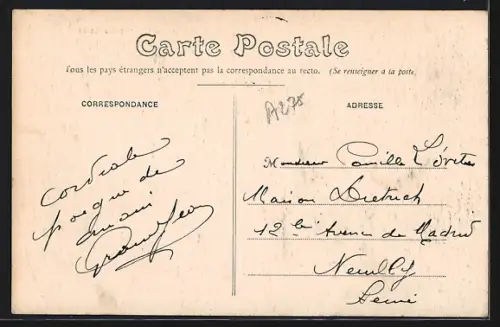 Carte Postale
Tous les pays étrangers n'acceptent pas la correspondance au recto. (Se renseigner à la poste.
CORRESPONDANCE
ADRESSE
A275
Cordiale
de
main
Monsieur Camille
Maison Dietrich
12 Avenue de Madrid
Neuilly
Seine